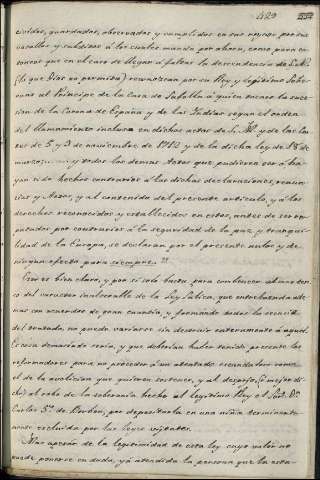 429
cividos, guardados, observados y cumplidos en sus reinos por sus
vasallos y subditos à los cuales manda por ahora, como para en-
tonces que en el caso de llegar à faltar la descendencia de S. M.
(lo que Dios no permita) reconozcan por su Rey y legitimo Sobe-
rano al Principe de la Casa de Saboya à quien tocare la suce-
sion de la Corona de España y de las Indias segun el orden
del llamamiento incluso en dichas actas de S. M. y de las Cor-
tes de 5 y 9 de noviembre de 1712 y de la dicha ley de 18 de
marzo........ y todos los demas Actos que pudieren ser ó ha-
yan sido hechos contrarios à las dichas declaraciones, renun-
cias y Actas, y al contenido del presente articulo, y à los
derechos reconocidos y establecidos en estos, antes de ser re-
putados por contrarios à la seguridad de la paz y tranqui-
lidad de la Europa, se declaran por el presente nulos y de
ningun efecto para siempre."
Esto es bien claro, y por si solo basta para convencer al mas ter-
co del caracter inalterable de la ley Salica, que entrelazada ade-
mas con acuerdos de gran cuantia, y formando toda la esencia
del tratado, no puede variarse sin destruir enteramente à aquel.
Cosa demasiado seria, y que deberian haber tenido presente los
reformadores para no proceder à un atentado escandaloso como
el de la abolicion que quieren sostener, y al despojo, (ó mejor di-
cho) al robo de la soberanía hecho al legitimo Rey el Señor Dn
Carlos 5º de Borbon, por depositarla en una niña terminante-
mente excluida por las leyes vigentes.
Mas apesar de la legitimidad de esta ley cuyo valor no
puede ponerse en duda, yá atendida la persona que la esta-